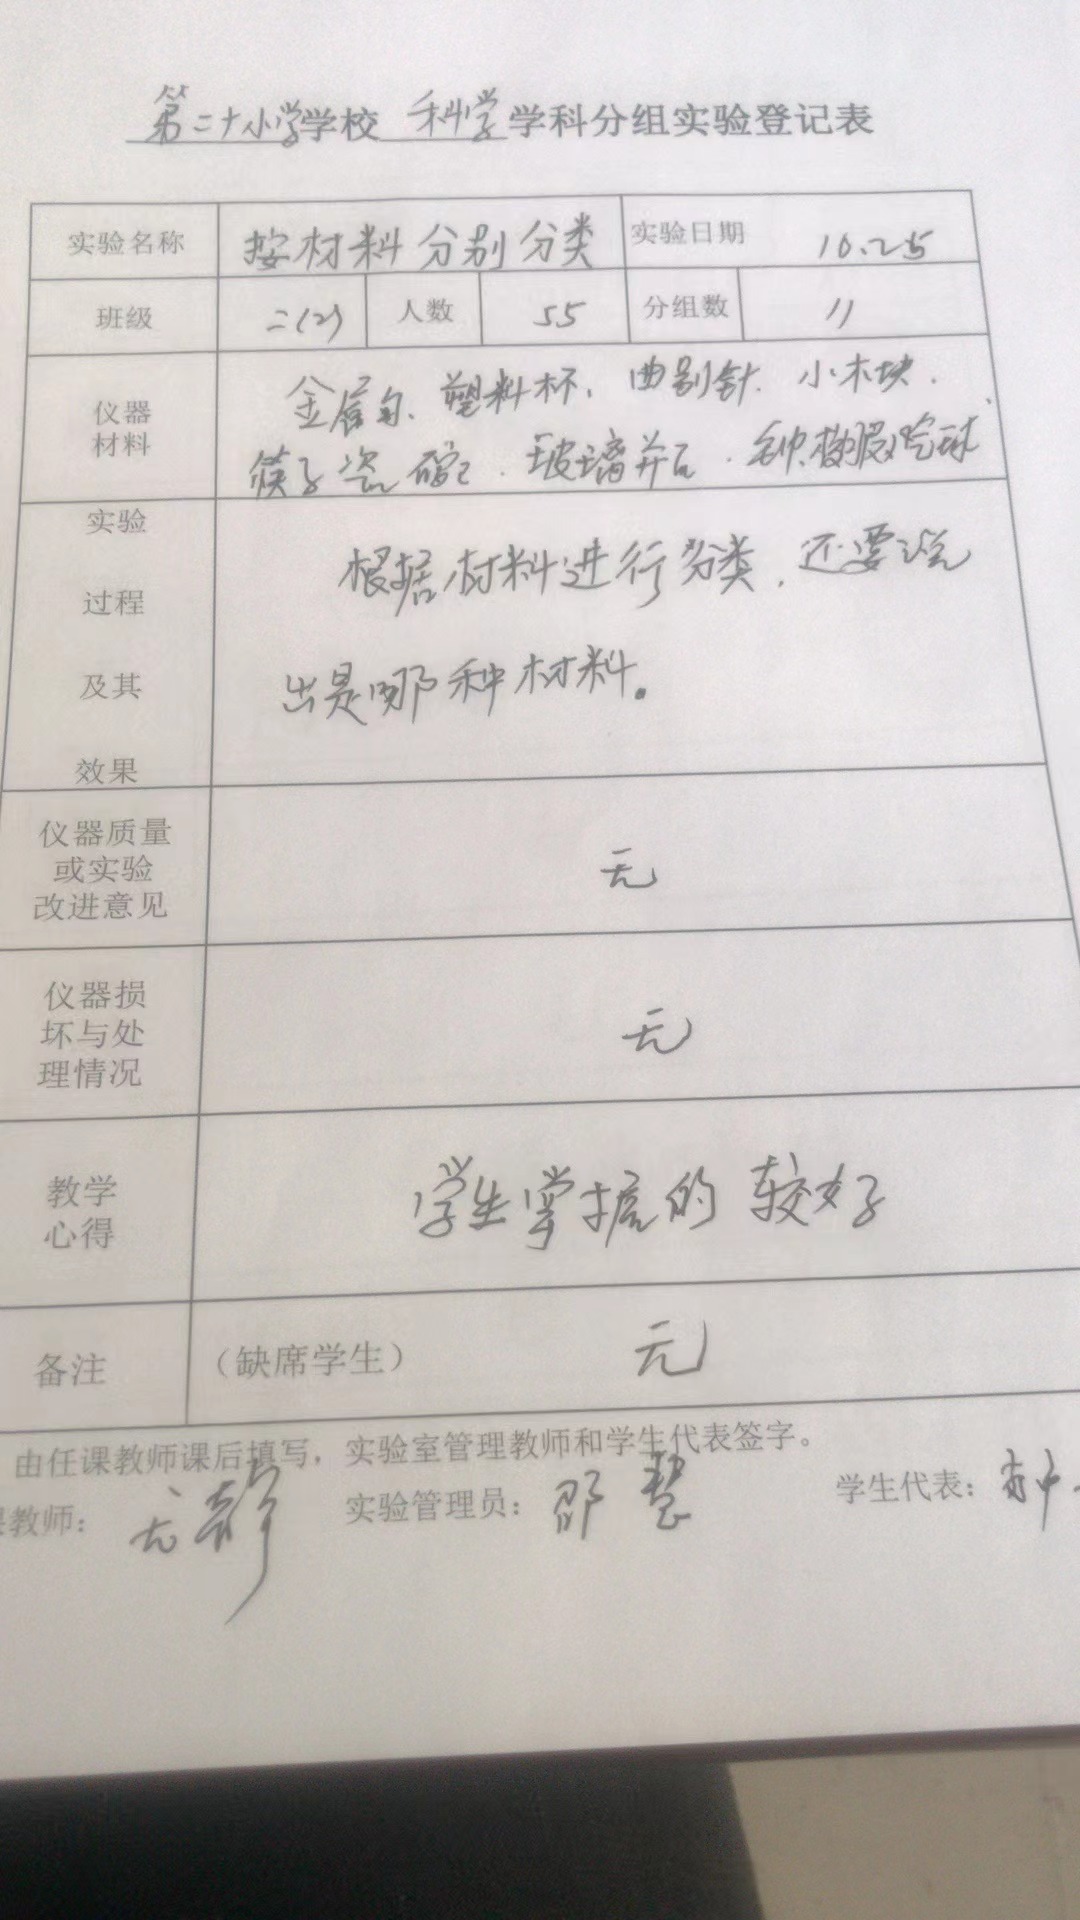 第二十小学学校 科学学科分组实验登记表
实验名称 按材料分别分类 实验日期 10.25
班级 二(2) 人数 55 分组数 11
仪器材料 金属勺、塑料杯、曲别针、小木块、
筷子 瓷碗、玻璃 气球
实验过程及其效果 根据材料进行分类,还要说
出是哪种材料。
仪器质量
或实验
改进意见 无
仪器损
坏与处
理情况 无
教学
心得 学生掌握的较好
备注 (缺席学生) 无
由任课教师课后填写,实验室管理教师和学生代表签字。
课教师: 实验管理员:邵慧 学生代表: